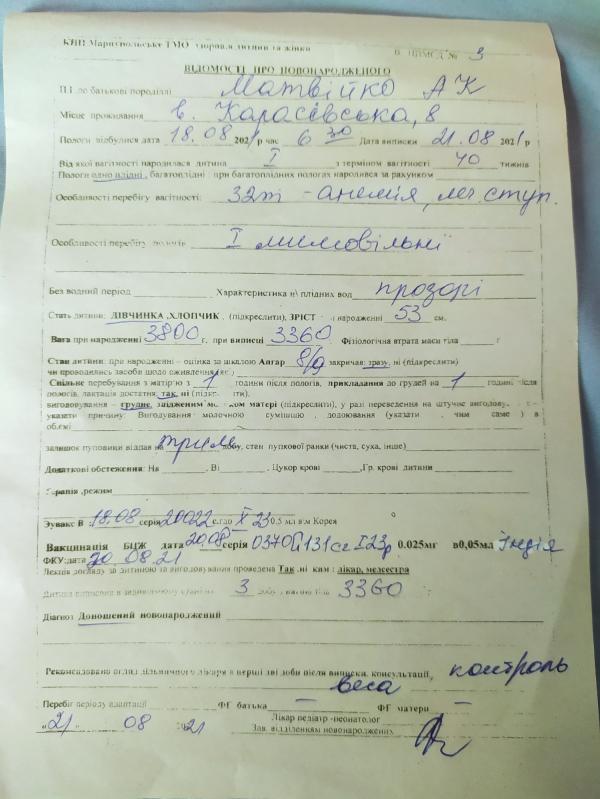 КНП Маріупольське ТМО здоров'я дитини та жінки
В ЦПМСД № 3
ВІДОМОСТІ ПРО НОВОНАРОДЖЕНОГО
П.І. по батькові породіллі Матвійко А К
Місце проживання в. Карасівська, 8
Пологи відбулися дата 18.08 2021р час 6 30 Дата виписки 21.08 2021р
Від якої вагітності народилася дитина I з терміном вагітності 40 тижнів
Пологи одноплідні, багатоплідні при багатоплідних пологах народився за рахунком
Особливості перебігу вагітності: 32т - анемія, лег. ступ.
Особливості перебігу пологів I мимовільні
Без водний період Характеристика н\ плідних вод прозорі
Стать дитини: ДІВЧИНКА ,ХЛОПЧИК , (підкреслити), ЗРІСТ народженні 53 см.
Вага при народженні 3800 г, при виписці 3360 Фізіологічна втрата маси тіла г
Стан дитини: при народженні – оцінка за шкалою Апгар 8/9 закричав: зразу, ні (підкреслити)
чи проводились засоби щодо оживлення
Спільне перебування з матір'ю з 1 години після пологів, прикладання до грудей на 1 годині після
пологів, лактація достатня, так, ні
вигодовування – грудне, зцідженим молоком матері (підкреслити), у разі переведення на штучне вигодову є -
указати причину. Вигодування молочною сумішшю , допоювання (указати , чим саме ) в
об'ємі
залишок пуповини відпав на добу, стан пупкової ранки (чиста, суха, інше)
Додаткові обстеження: На , Ві , Цукор крові ,Гр. крові дитини
Терапія ,режим
Эувакс В 18.08 серія 20022 X 23 0.5 мл в\м Корея
Вакцинація БЦЖ дата 20.08 серія 0.025мг в0,05мл Індія
ФКУ:дата 20.08.21
Лекція догляду за дитиною та вигодовування проведена Так ,ні ким : лікар, медсестра
Дитина виписана в задовільному стані на 3 добу , вагою тіла 3360
Діагноз Доношений новонароджений
Рекомендовано огляд дільничного лікаря в перші дві доби після виписки, консультації, контроль
веса
Перебіг періоду адаптації ФГ батька – ФГ матері –
„21„ 08 21 Лікар педіатр -неонатолог
Зав. відділенням новонароджених